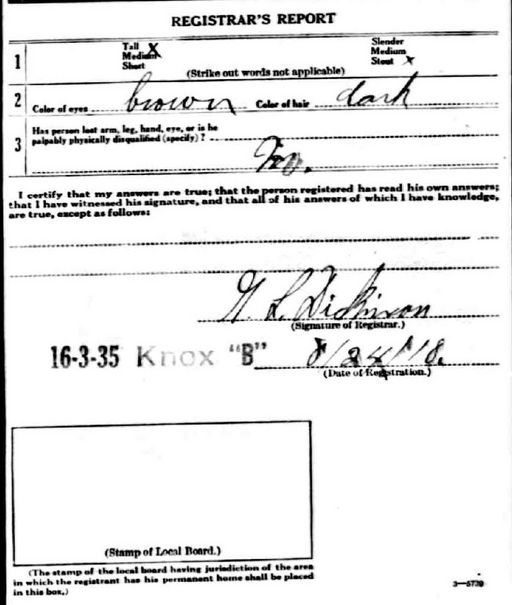 REGISTRAR'S REPORT
1 Tall X Slender
Medium Medium
Short Stout X
(Strike out words not applicable)
2 Color of eyes brown Color of hair dark
3 Has person lost arm, leg, hand, eye, or is he
palpably physically disqualified (specify)?
No.
I certify that my answers are true; that the person registered has read his own answers;
that I have witnessed his signature, and that all of his answers of which I have knowledge,
are true, except as follows:
Dickinson
(Signature of Registrar.)
16-3-35 Knox "B" 8/24/18.
(Date of Registration.)
(Stamp of Local Board.)
(The stamp of the local board having jurisdiction of the area
in which the registrant has his permanent home shall be placed
in this box.)
3—5739